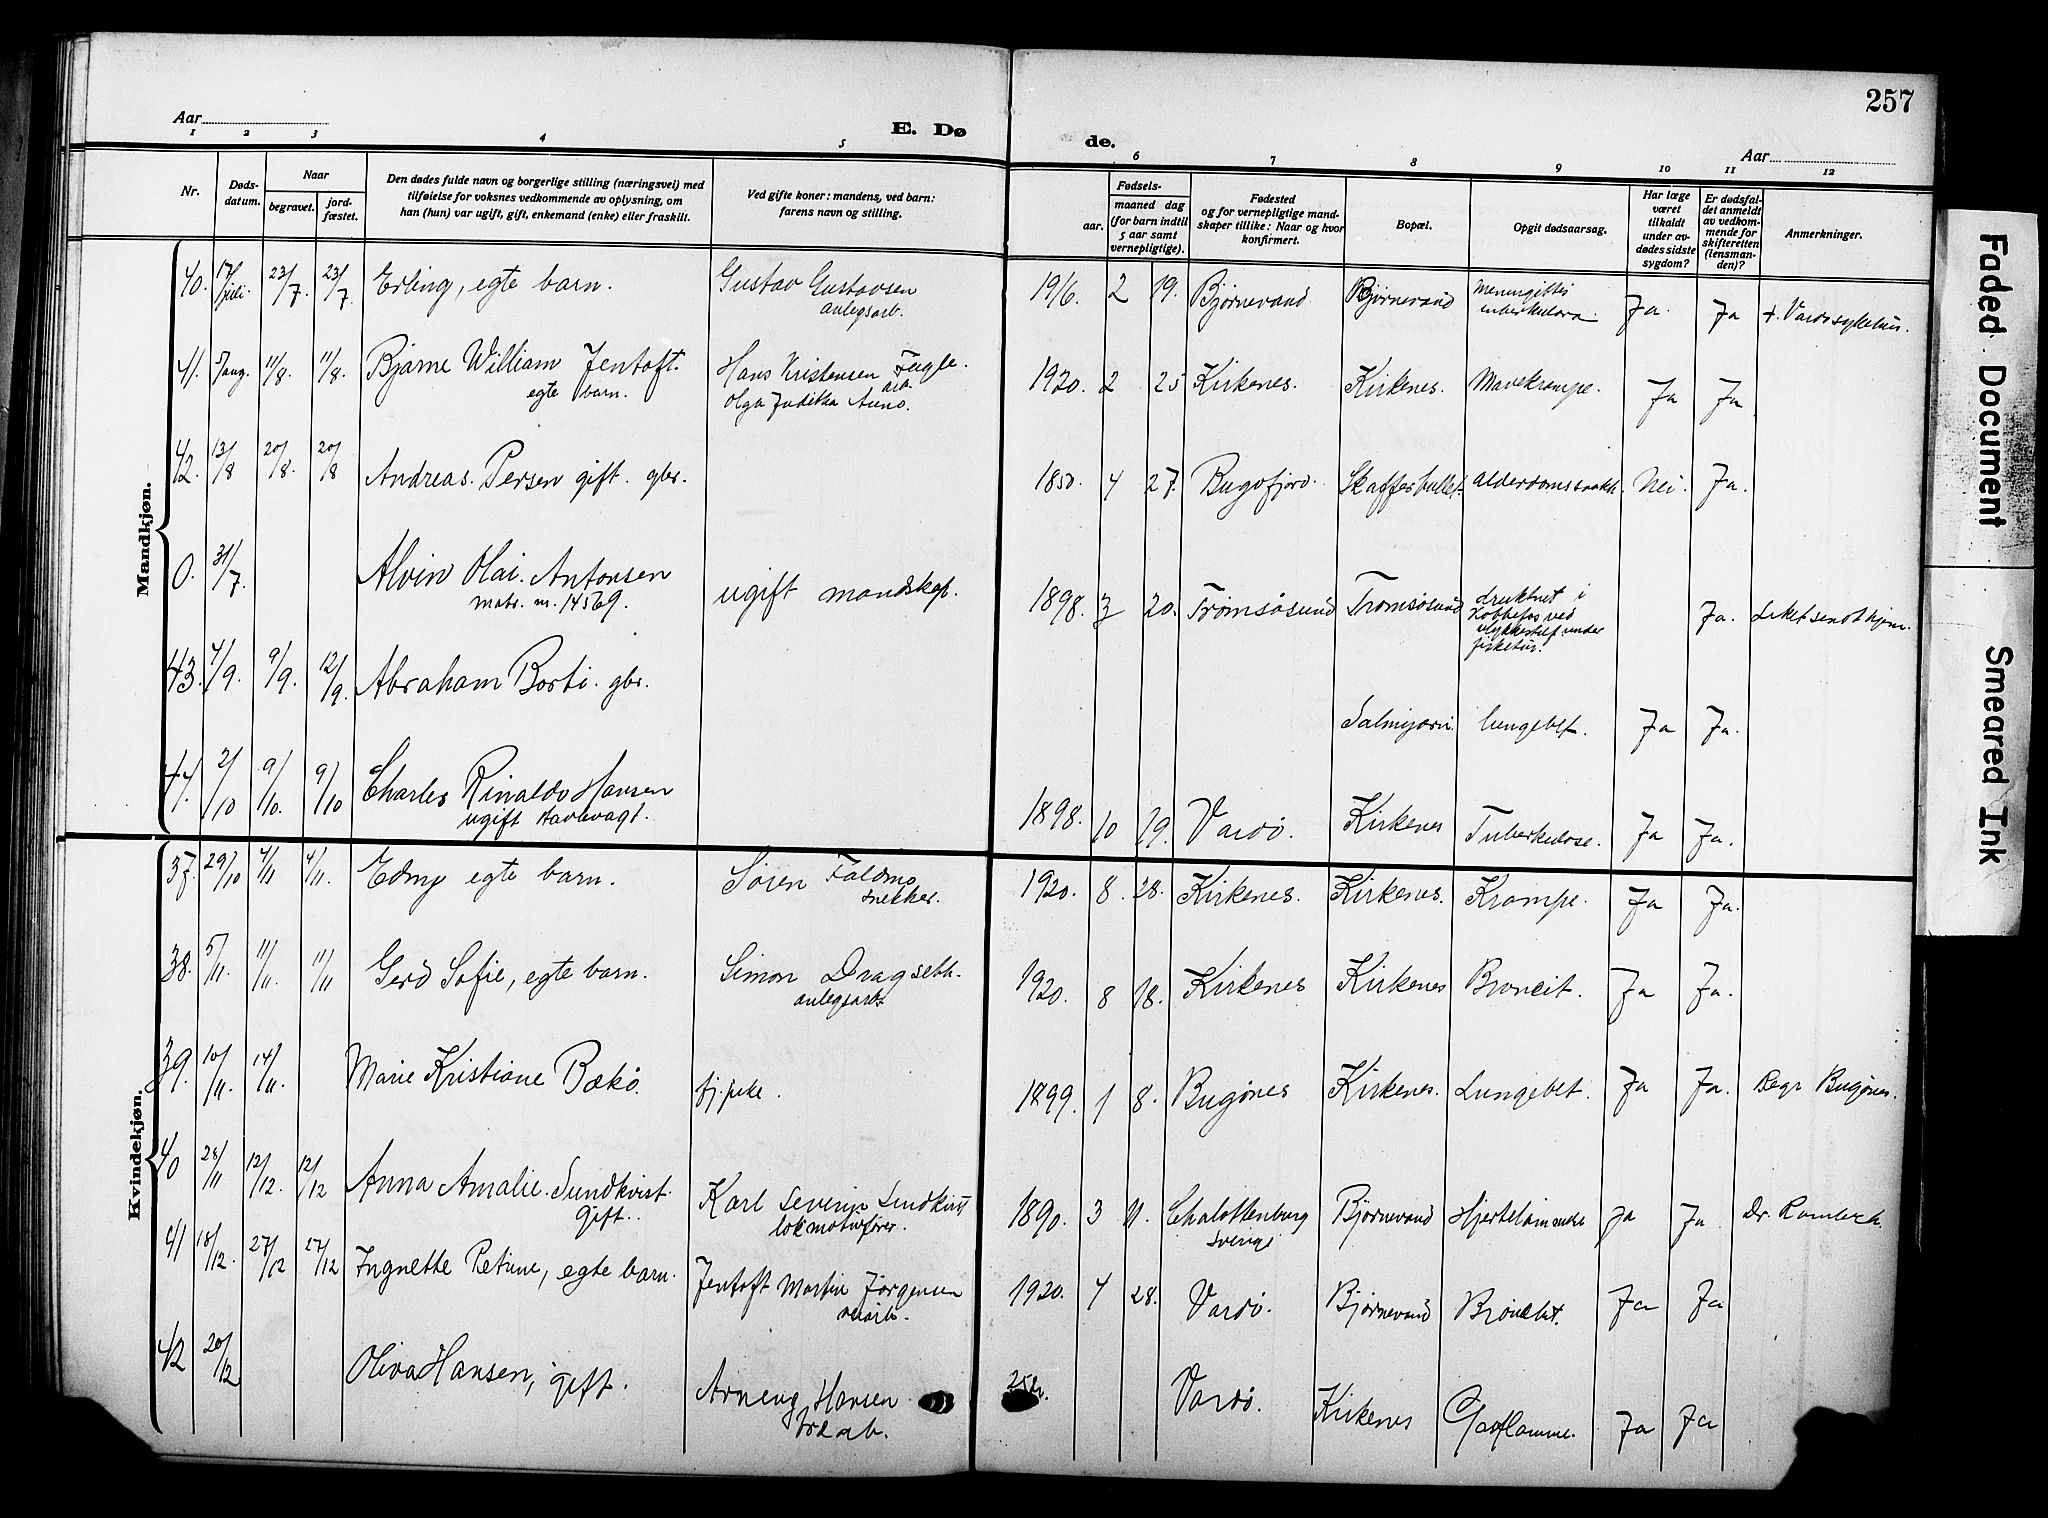 257
Aar
E. Dø
de.
Aar
1 2 3 4 5 6 7 8 9 10 11 12
Nr.
Døds-
datum.
Naar
begravet.
jord-
fæstet.
Den dødes fulde navn og borgerlige stilling (næringsvei) med
tilføielse for voksnes vedkommende av oplysning, om
han (hun) var ugift, gift, enkemand (enke) eller fraskilt.
Ved gifte koner: mandens, ved barn:
farens navn og stilling.
Fødsels-
aar.
maaned dag
(for barn indtil
5 aar samt
vernepligtige).
Fødested
og for vernepligtige mand-
skaper tillike: Naar og hvor
konfirmert.
Bopæl.
Opgit dødsaarsag.
Har læge
været
tilkaldt
under av-
dødes sidste
sygdom?
Er dødsfal-
det anmeldt
av vedkom-
mende for
skifteretten
(lensman-
den)?
Anmerkninger.
Mandkjøn.
40. 17/juli 23/7 23/7 Erling, egte barn. Gustav Gustavsen 1916 2 19. Bjørnevand Bjørnevand Ja. Ja
anlegsarb.
41. 5/aug. 11/8. 11/8. Bjarne William Jentoft. Hans Kristensen Fugle. 1920. 2 25 Kirkenes. Kirkenes. Mavekrampe. Ja Ja
egte barn. arb.
Olga
42. 13/8 20/8. 20/8 Andreas Persen gift. gbr. 1850. 4 27. Bugøfjord. Nei. Ja.
0. 31/7. Alvin Olai Antonsen ugift mandskap. 1898. 3 20. Tromsøsund Tromsøsund druknet i Ja. Liket sendt hjem.
matr. nr. 14569. Kobbefos ved
ulykkestilf under
fisketur.
43. 4/9. 9/9. 12/9. Abraham Borti. gbr. Salmijærvi lungebet. Ja Ja.
44. 2/10 9/10. 9/10 Charles Rinaldo Hansen 1898. 10 29. Vardø. Kirkenes Tuberkulose. Ja Ja.
ugift
Kvindekjøn.
37. 29/10 4/11 4/11. Edny egte barn. Søren Foldmo 1920. 8. 28. Kirkenes. Kirkenes. Krampe. Ja Ja.
snekker.
38. 5/11. 11/11. 11/11 Gerd Sofie, egte barn. Simon Dragseth. 1920. 8 18. Kirkenes Kirkenes Broncit. Ja Ja.
anlegsarb.
39. 10/11. 14/11. Marie Kristiane Bækø. tj.pike. 1899. 1 8. Bugønes Kirkenes. Lungebet. Ja Ja. Begr Bugønes.
40 28/11 12/12. 12/12 Anna Amalie Sundkvist. Karl Severin Sundkvist 1890. 3 11. Chalottenburg Bjørnevand Hjertelammelse Ja Ja.
gift. lokmotivfører. Sverige
41 18/12. 27/12 27/12 Ingnette Petrine, egte barn. Jentoft Martin Jørgensen 1920. 4 28. Vardø. Bjørnevand Ja Ja
42 20/12 Oliva Hansen, gift. Hansen 25 Vardø. Kirkenes Ja Ja
Faded Document
Smeared Ink